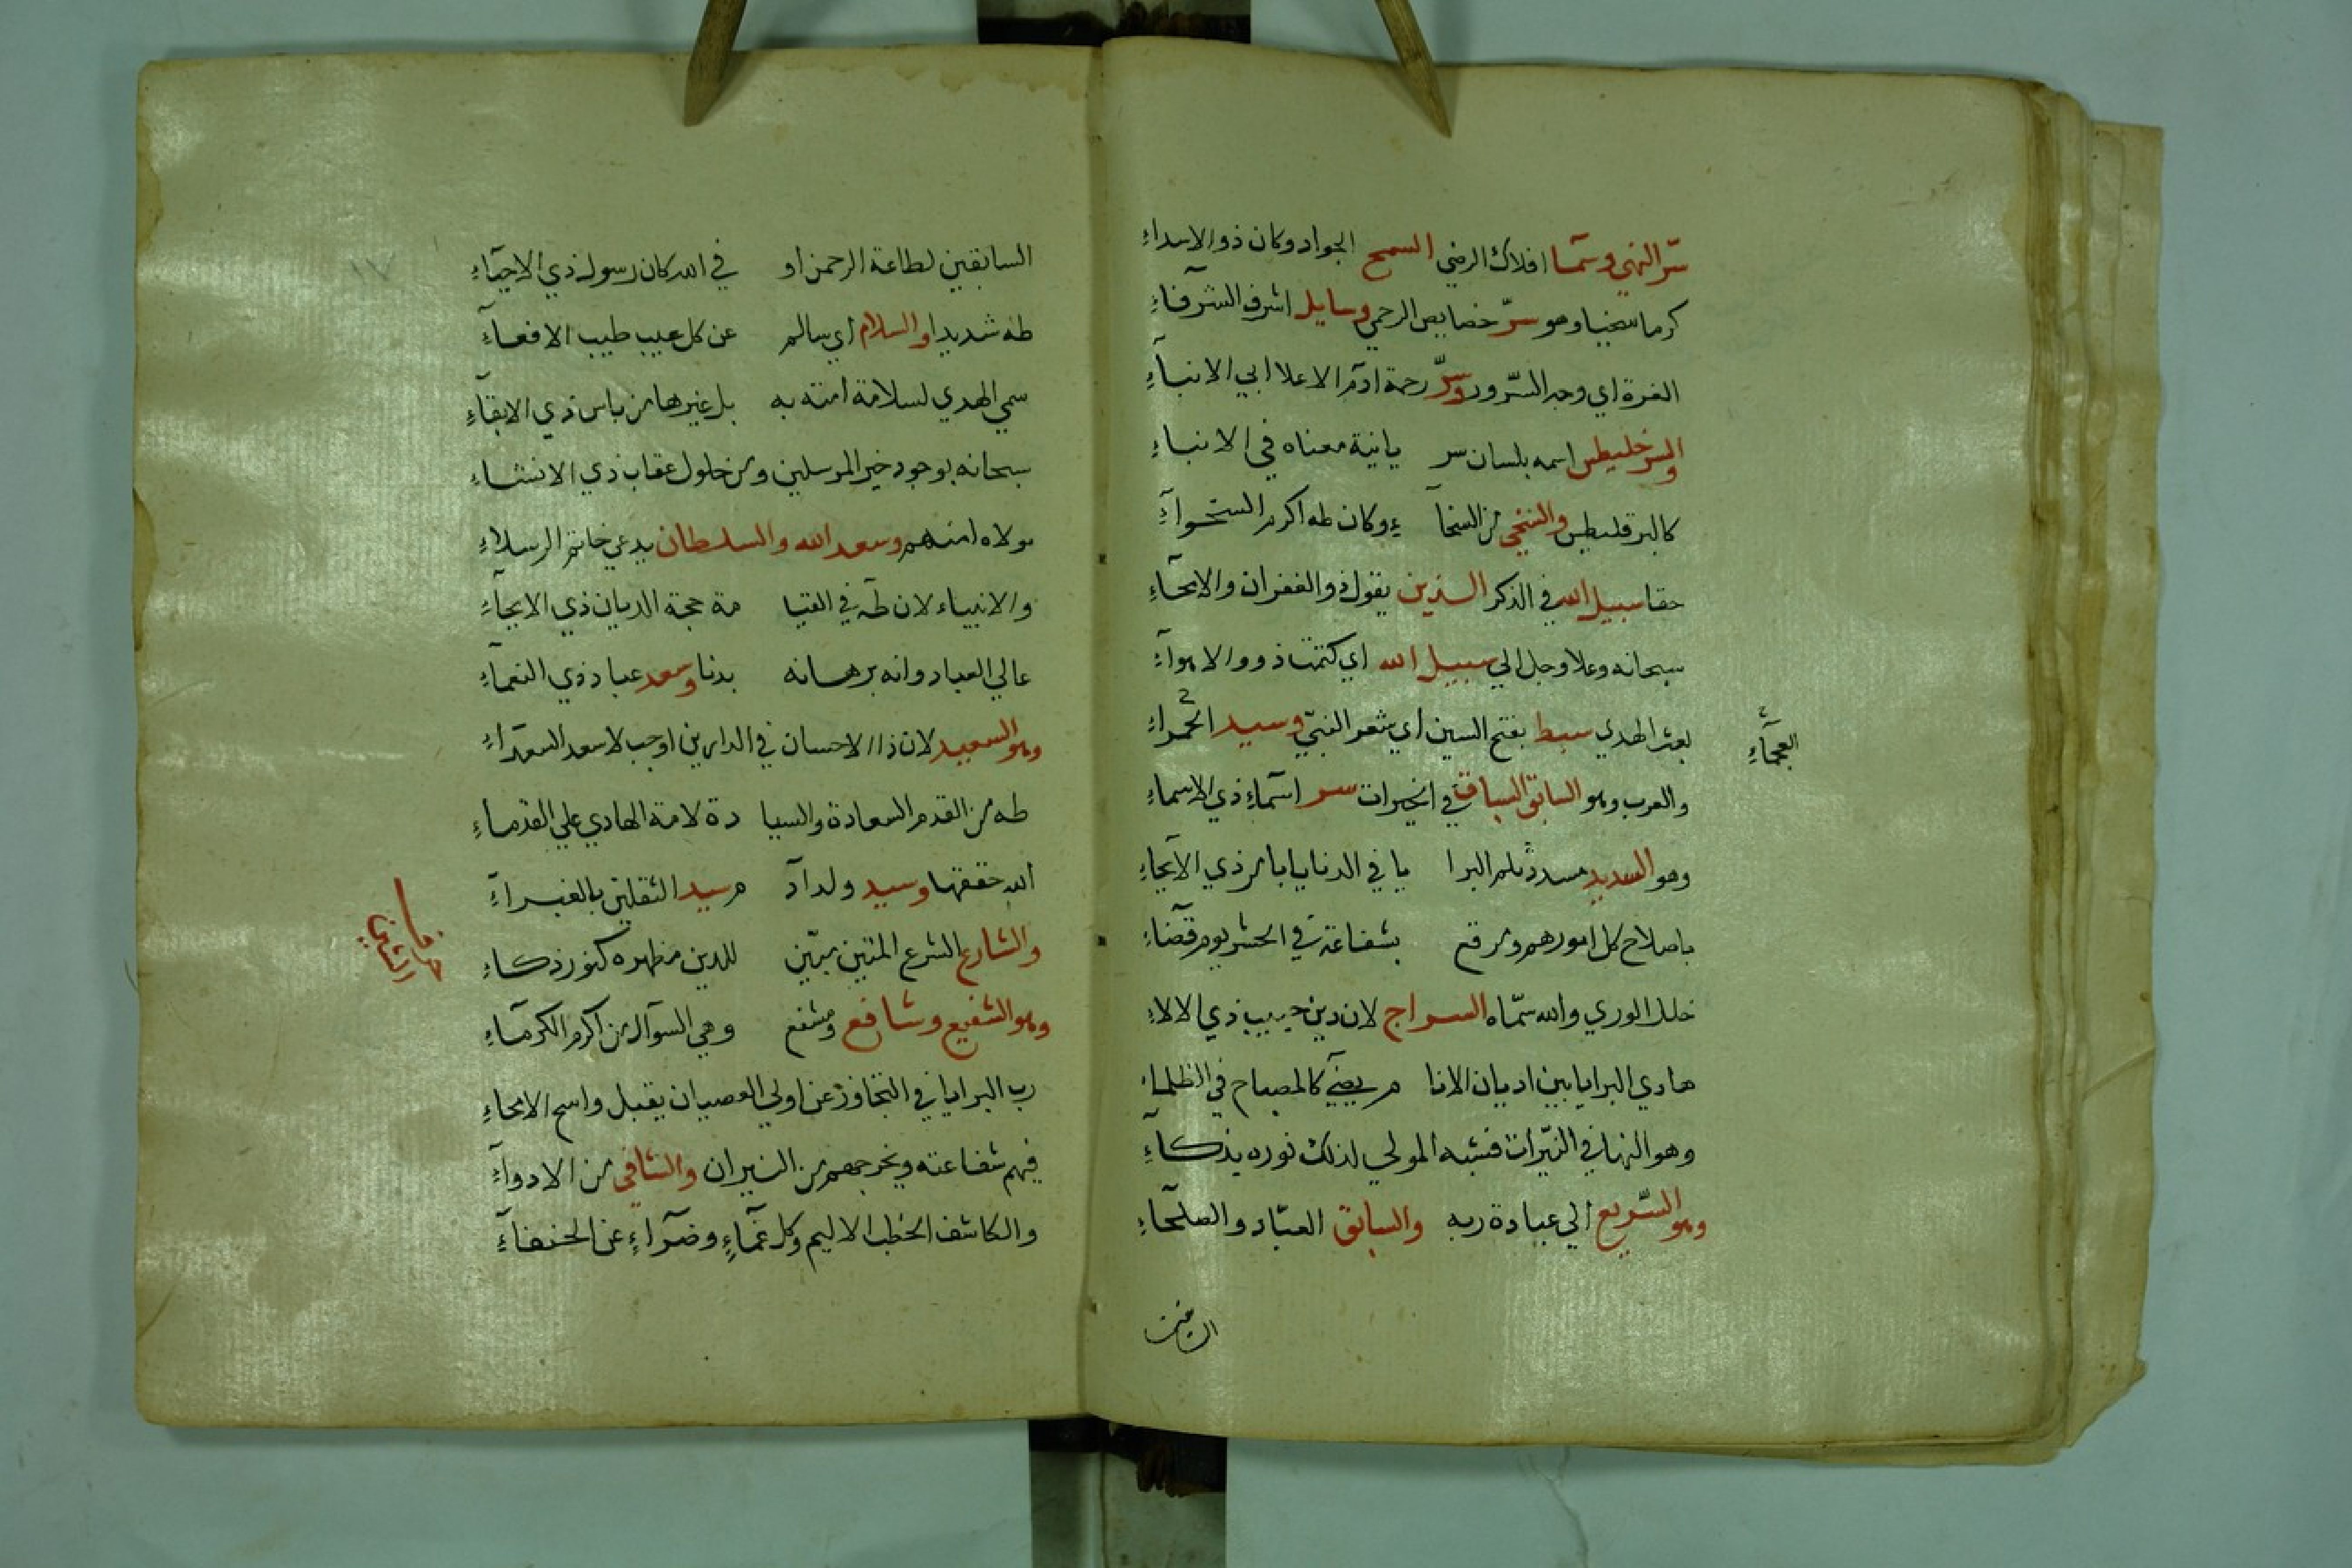 سرّ النهي وسمآ افلاك الرضي السميح الجواد وكان ذو الاسداءِ
كرما سخيا وهو سرّ خصايص الرحمي وسايل اشرف الشرفآءِ
الغرة اي وجه السّرور وسرّ رحمة ادم الاعلا ابي الانبآءِ
والسرخليطس اسمه بلسان سر يانية معناه في الانباءِ
كالبرقليطس والسخي من السخآ ءِ وكان طه اكرم السخوآءِ
حقا سبيل الله في الذكر الذين يقول ذو الغفران والامحآءِ
سبحانه وعلا وجل الي سبيل الله اي كتمت ذوو الاهوآءِ
بعث الهدي سبط بفتح السين اي شعر النبيّ وسيد الحمراءِ
العجمآءِ
والعرب وهو السابق السباق في الخيرات سر اسمآءِ ذي الاسماءِ
وهو السديد مسدد البرا يا في الدنا ذي الايجاءِ
باصلاح كل امورهم ومن رقم بشفاعة في الحشر يوم قضآءِ
خلل الوري والله سمّاه السراج لان دين حبيب ذي الالاءِ
هادي البرايا بين اديان الانا م يضيٓ كالمصباح في الظلماءِ
وهو النهار في النيّرات فشبه المولي لذلك نوره بذكآءِ
وهو السّريع الي عبادة ربه والسابق العبّاد والصلحآءِ
السابقين
السابقين لطاعة الرحمن او في الله كان رسول ذي الاحيآءِ
طه شديدا والسلام اي سالم عن كل عيب طيب الافعآءِ
سمي الهدي لسلامة امته به بل غيرها من باس ذي الابقآءِ
سبحانه بوجود خير المرسلين ومن حلول عقاب ذي الانشاءِ
مولاه امنهم وسعد الله والسلطان يدعي خاتم الرسلاءِ
والانبياء لان طه في القيا مة حجة الديان ذي الايجآءِ
عالي العباد وانه برهانه بدنا وسعد عباد ذي النعمآءِ
وهو السعيد لان ذا الاحسان في الدارين اوجب لاسعد السعدآءِ
طه من القدم السعادة والسيا دة لامة الهادي علي القدماءِ
الله حققها وسيد ولد آد م سيد الثقلين بالغبرآءِ
والشارع الشرع المتين مبيّن للدين مظهره كنور ذكاءِ
وهو الشفيع وشافع ومشفع وهي السوآل من اكرم الكرمآءِ
رب البرايا في التجاوز عن اولي العصيان يقبل واسع الامحاءِ
فيهم شفاعته ويخرجهم من النيران والشافي من الادوآءِ
والكاشف الخطب الاليم وكل غمآءٍ وضرآءٍ عن الحنفآءِ